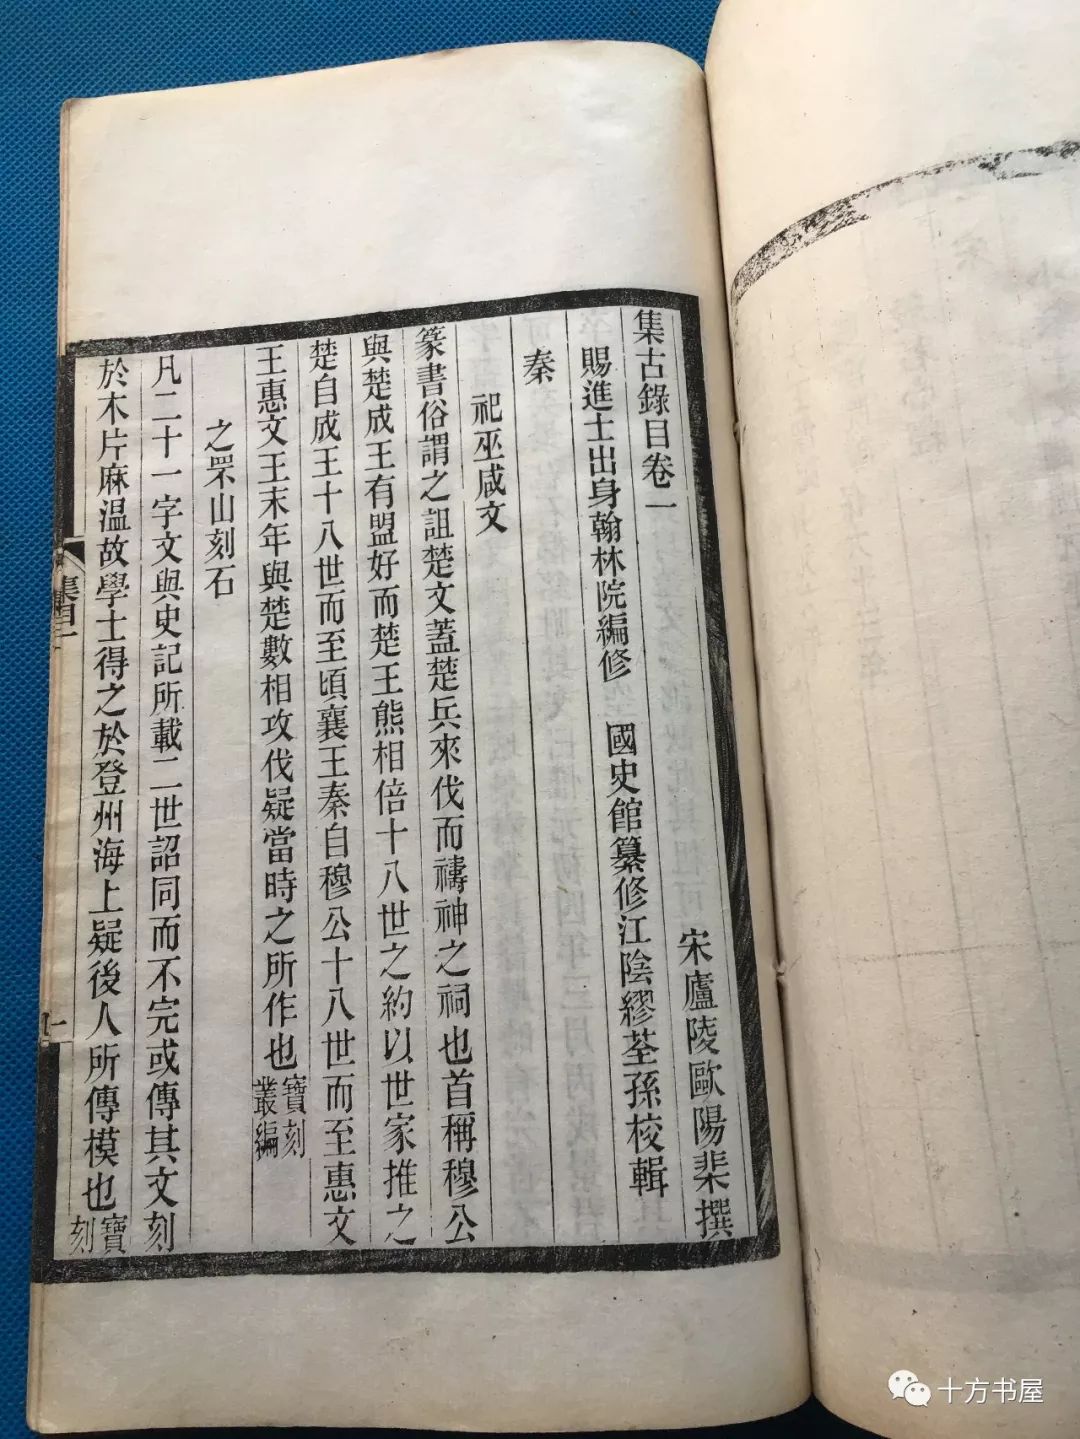 集古錄目卷一
宋廬陵歐陽棐撰
賜進士出身翰林院編修　國史館纂修江陰繆荃孫校輯
秦
祀巫咸文
篆書俗謂之詛楚文蓋楚兵來伐而禱神之祠也首稱穆公
與楚成王有盟好而楚王熊相倍十八世之約以世家推之
楚自成王十八世而至頃襄王秦自穆公十八世而至惠文
王惠文王末年與楚數相攻伐疑當時之所作也寶刻叢編
之罘山刻石
凡二十一字文與史記所載二世詔同而不完或傳其文刻
於木片麻温故學士得之於登州海上疑後人所傳模也寶刻
集目一
一
十方书屋